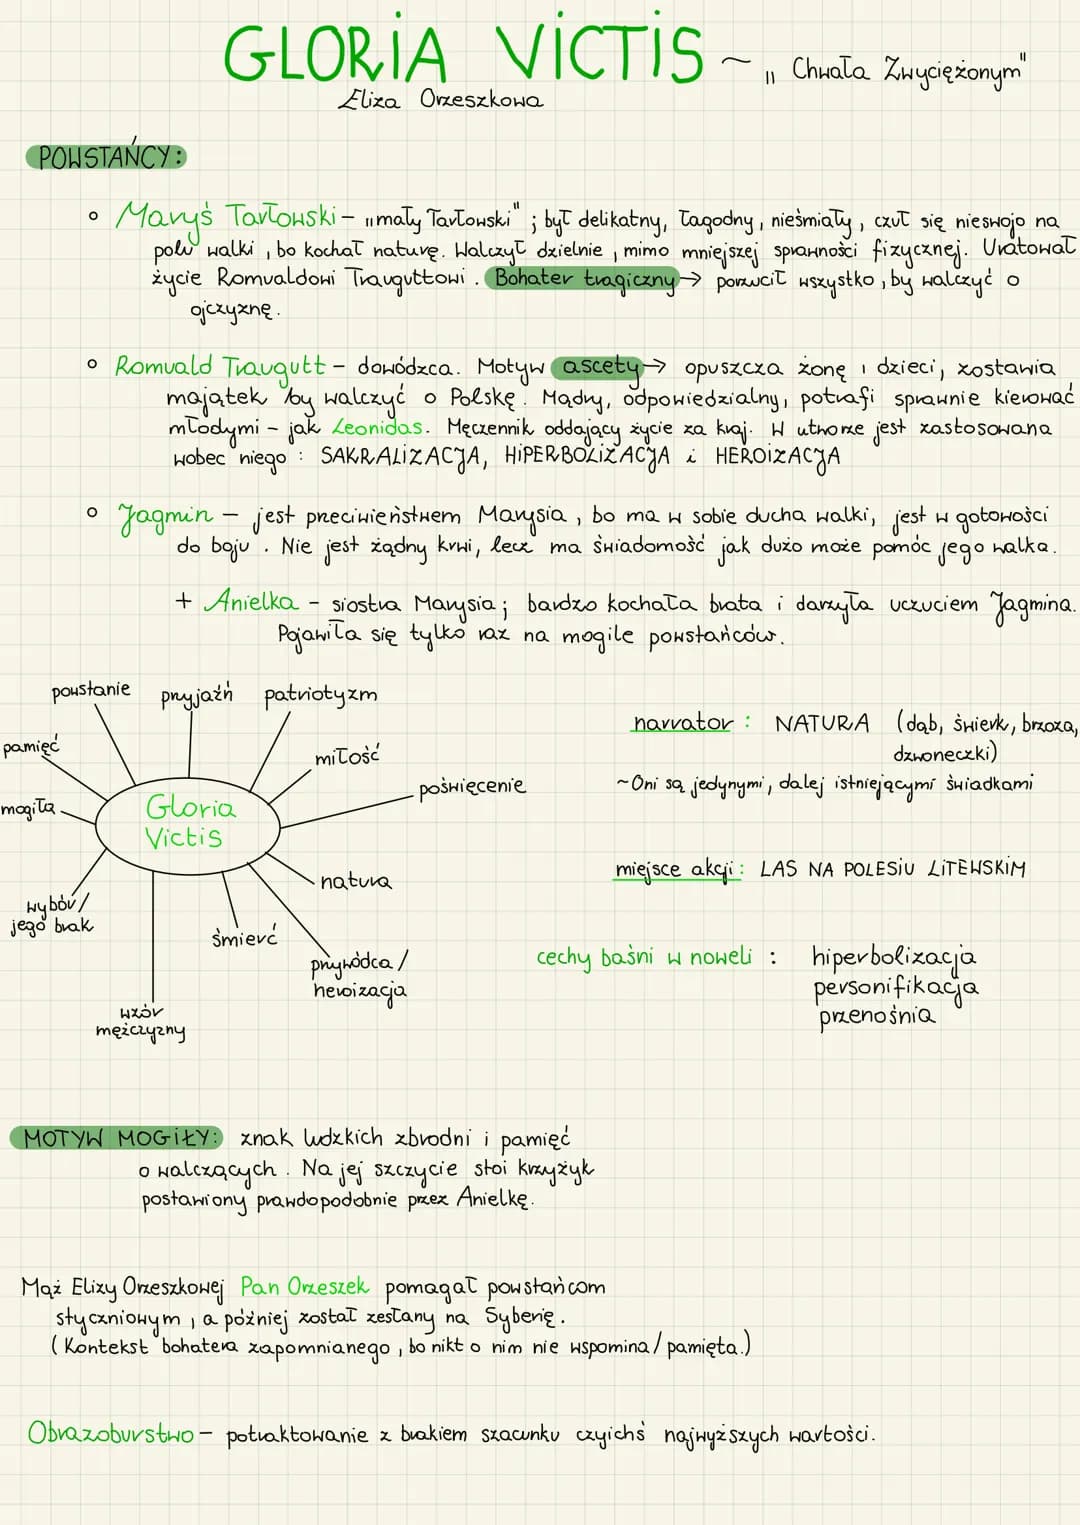 GLORIA VICTIS ~ „Chwała Zwyciężonym"
Eliza Orzeszkowa
POWSTAŃCY:
◦ Maryś Tarłowski – „mały Tarłowski" ; był delikatny, łagodny, nieśmiały, czuł się nieswojo na
polu walki, bo kochał naturę. Walczył dzielnie, mimo mniejszej sprawności fizycznej. Uratował
życie Romualdowi Trauguttowi. Bohater tragiczny → porzucił wszystko, by walczyć o
ojczyznę.
◦ Romuald Traugutt – dowódzca. Motyw ascety → opuszcza żonę i dzieci, zostawia
majątek by walczyć o Polskę. Mądry, odpowiedzialny, potrafi sprawnie kierować
młodymi – jak Leonidas. Męczennik oddający życie za kraj. W utworze jest zastosowana
wobec niego : SAKRALIZACJA, HIPERBOLIZACJA i HEROIZACJA
◦ Jagmin – jest przeciwieństwem Marysia, bo ma w sobie ducha walki, jest w gotowości
do boju. Nie jest żądny krwi, lecz ma świadomość jak dużo może pomóc jego walka.
+ Anielka – siostra Marysia; bardzo kochała brata i darzyła uczuciem Jagmina.
Pojawiła się tylko raz na mogile powstańców.
powstanie
przyjaźń
patriotyzm
pamięć
miłość
mogiła
poświęcenie
Gloria
Victis
natura
wybór/
jego brak
śmierć
przywódca/
heroizacja
wzór
mężczyzny
narrator : NATURA (dąb, świerk, brzoza,
dzwoneczki)
~Oni są jedynymi, dalej istniejącymi świadkami
miejsce akcji: LAS NA POLESIU LITEWSKIM
cechy baśni w noweli : hiperbolizacja
personifikacja
przenośnia
MOTYW MOGIŁY: znak ludzkich zbrodni i pamięć
o walczących. Na jej szczycie stoi krzyżyk
postawiony prawdopodobnie przez Anielkę.
Mąż Elizy Orzeszkowej Pan Orzeszek pomagał powstańcom
styczniowym, a później został zesłany na Syberię.
(Kontekst bohatera zapomnianego, bo nikt o nim nie wspomina/pamięta.)
Obrazoburstwo – potraktowanie z brakiem szacunku czyichś najwyższych wartości.